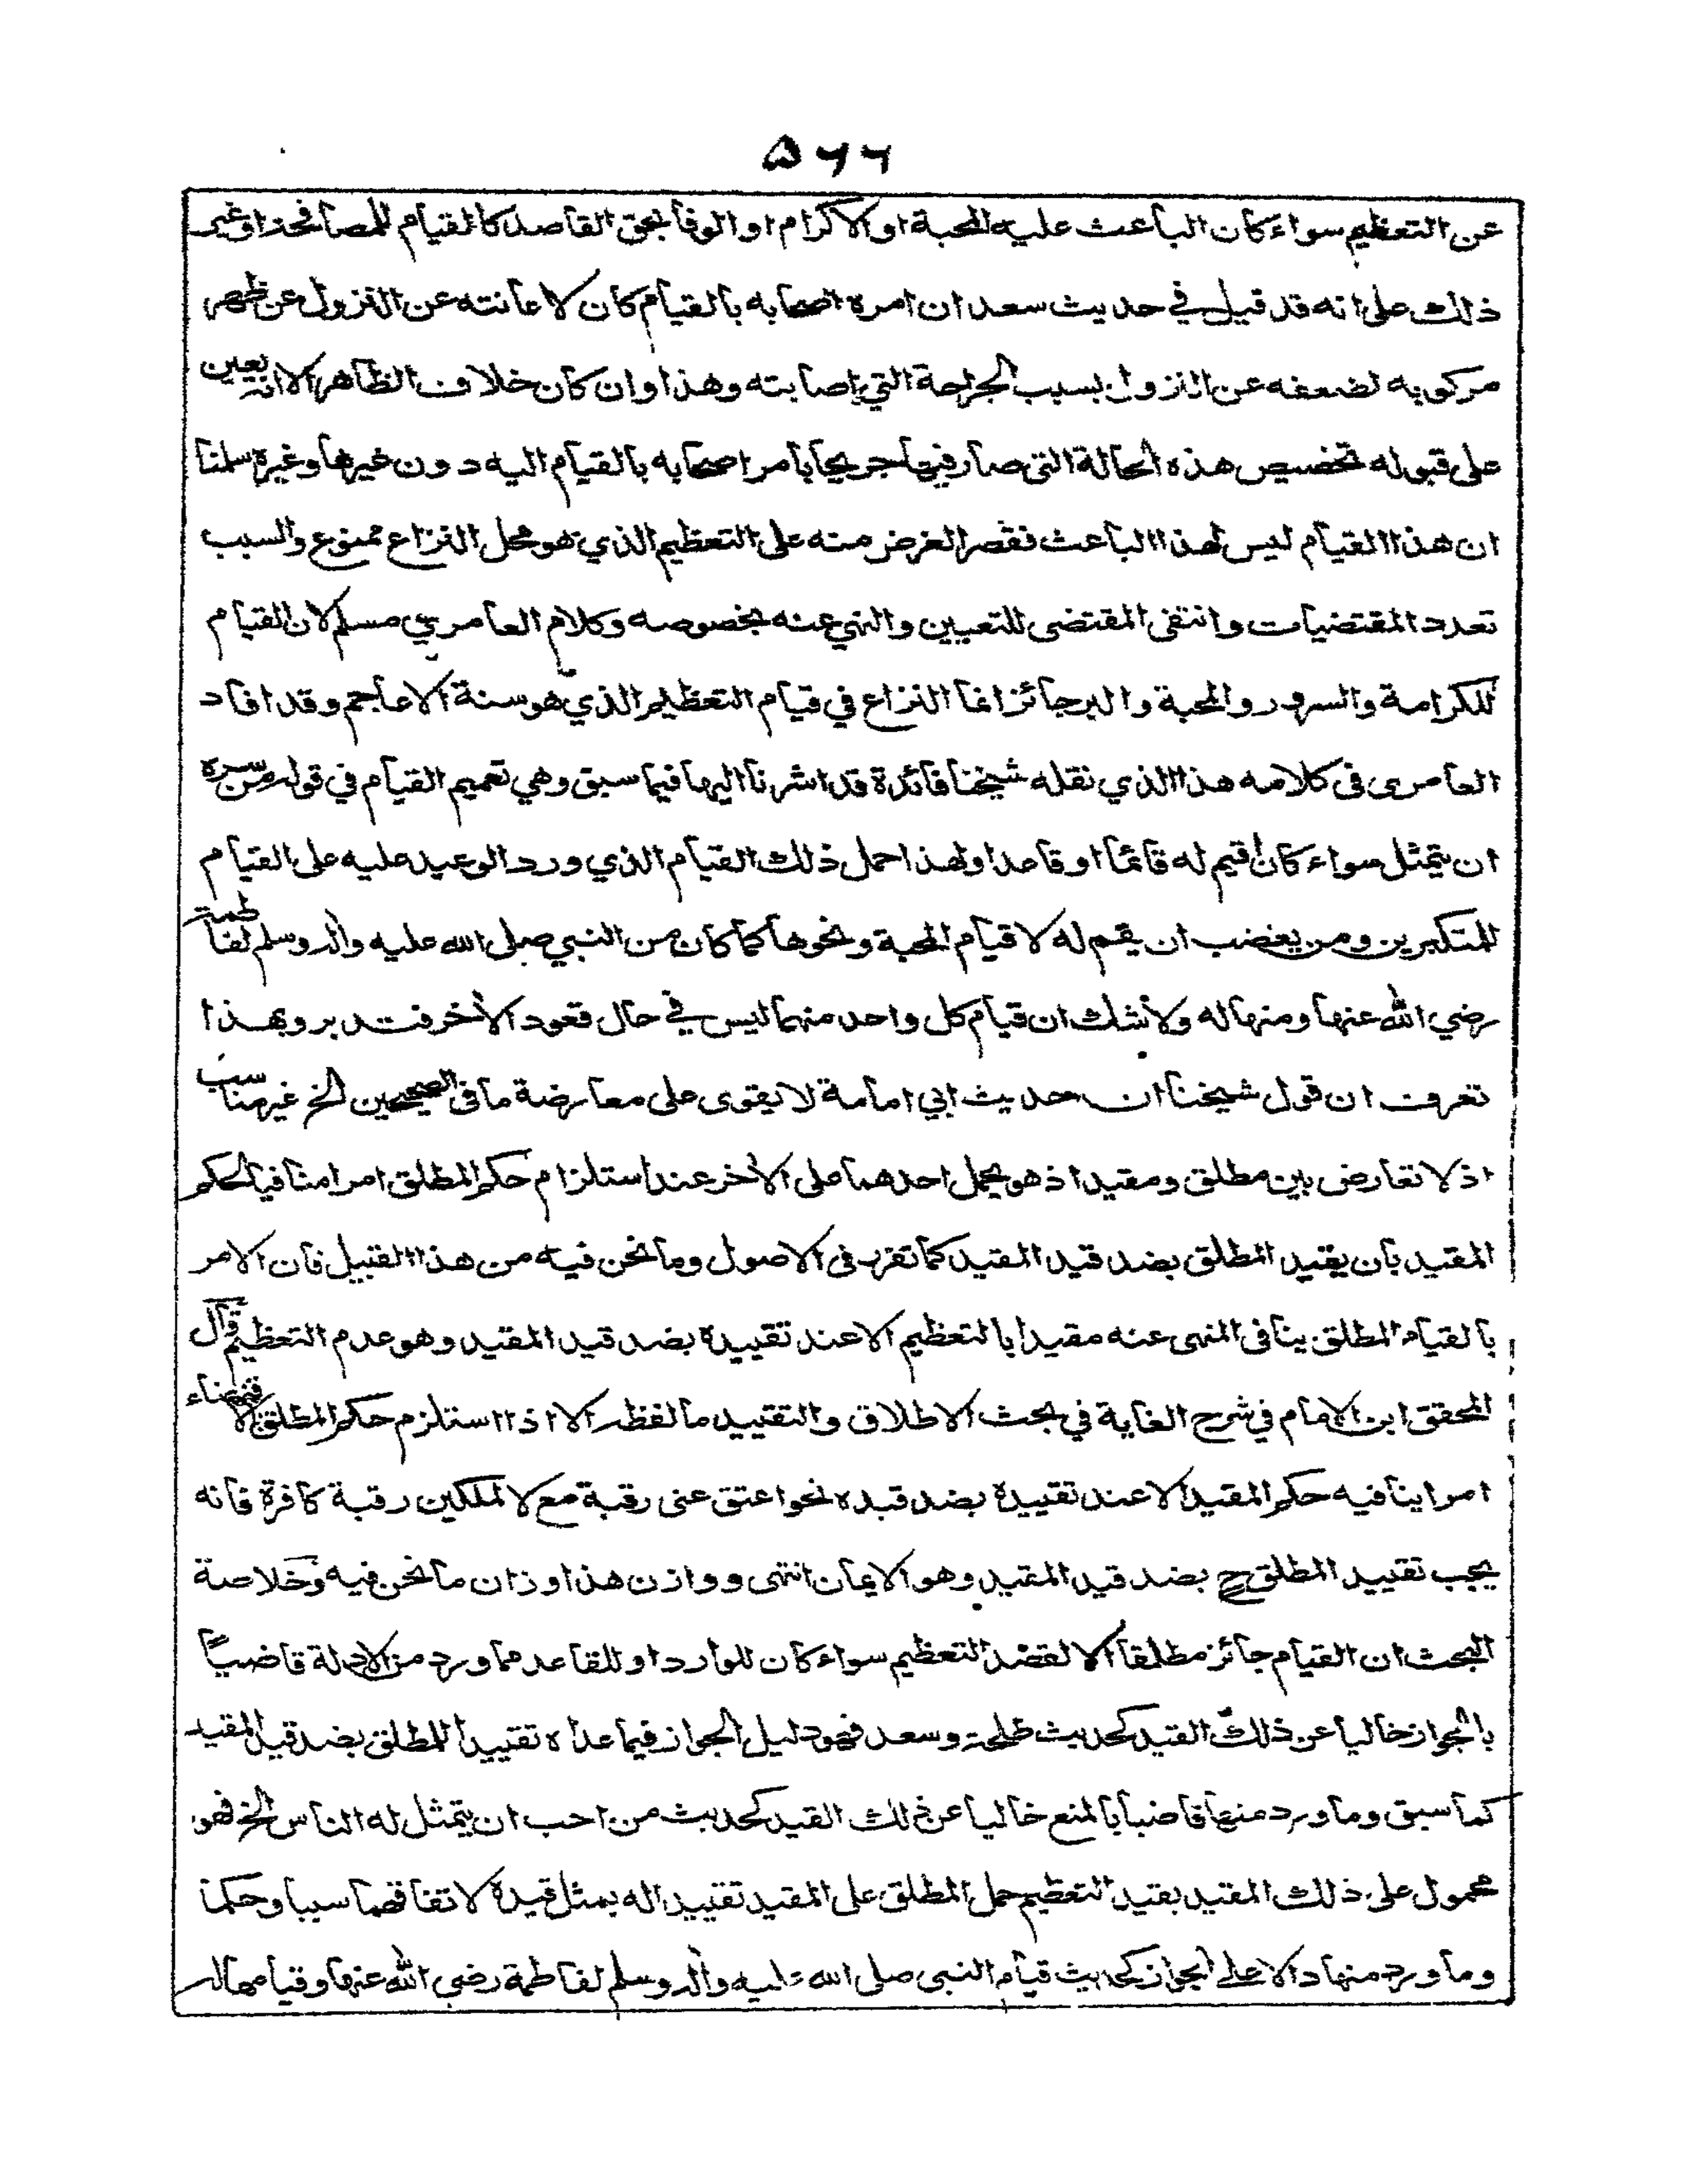 ۵۶۶
عن التعظيم سواء كان الباعث عليه المحبة او الاكرام او الوفا بحق القاصد كالقيام للمصافحة او غير
ذلك على انه قد قيل في حديث سعد ان امره اصحابه بالقيام كان لاعانته عن النزول عن ظهر
مركوبه لضعفه عن النزول بسبب الجراحة التي اصابته وهذا وان كان خلاف الظاهر الا انه يعين
على قبوله تخصيص هذه الحالة التي صار فيها جريحا بامر اصحابه بالقيام اليه دون غيرها وغيره سلمنا
ان هذا القيام ليس لهذا الباعث فقصر الغرض منه على التعظيم الذي هو محل النزاع ممنوع والسبب
تعدد المقتضيات وانتفى المقتضى للتعيين والنهي عنه بخصوصه وكلام العامري مسلم لان القيام
للكرامة والسرور والمحبة والبر جائز انما النزاع في قيام التعظيم الذي هو سنة الاعاجم وقد افاد
العامري في كلامه هذا الذي نقله شيخنا فائدة قد اشرنا اليها فيما سبق وهي تعميم القيام في قوله من سره
ان يتمثل سواء كان اقيم له قائما او قاعدا ولهذا حمل ذلك القيام الذي ورد الوعيد عليه على القيام
للمتكبرين ومن يغضب ان يقم له لا قيام المحبة ونحوها كما كان من النبي صلى الله عليه واله وسلم لفاطمة
رضي الله عنها ومنها له ولا شك ان قيام كل واحد منهما ليس في حال قعود الاخر فتدبر وبهذا
تعرف ان قول شيخنا ان حديث ابي امامة لا يقوى على معارضة ما في الصحيحين الخ غير مناسب
اذ لا تعارض بين مطلق ومقيد اذ هو يحمل احدهما على الاخر عند استلزام حكم المطلق امرا منافيا لحكم
المقيد بان يقيد المطلق بضد قيد المقيد كما تقرر في الاصول وما نحن فيه من هذا القبيل فان الامر
بالقيام المطلق ينافي المنهى عنه مقيدا بالتعظيم الا عند تقييده بضد قيد المقيد وهو عدم التعظيم قال
المحقق ابن الامام في شرح الغاية في بحث الاطلاق والتقييد ما لفظه الا اذا استلزم حكم المطلق بالاقتضاء
امرا ينافيه حكم المقيد الا عند تقييده بضد قيده نحو اعتق عني رقبة مع لا تملكين رقبة كافرة فانه
يجب تقييد المطلق ح بضد قيد المقيد وهو الايمان انتهى ووازن هذا وزان ما نحن فيه وخلاصة
البحث ان القيام جائز مطلقا الا لقصد التعظيم سواء كان للوارد او للقاعد مما ورد من الادلة قاضيا
بالجواز خاليا عن ذلك القيد كحديث طلحة وسعد فهو دليل الجواز فيما عداه تقييدا للمطلق بضد قيد المقيد
كما سبق وما ورد منها قاضيا بالمنع خاليا عن ذلك القيد كحديث من احب ان يتمثل له الناس الخ فهو
محمول على ذلك المقيد بقيد التعظيم حمل المطلق على المقيد تقييدا له بمثل قيده لاتفاقهما سببا وحكما
وما ورد منها دالا على الجواز كحديث قيام النبي صلى الله عليه واله وسلم لفاطمة رضي الله عنها وقيامها له